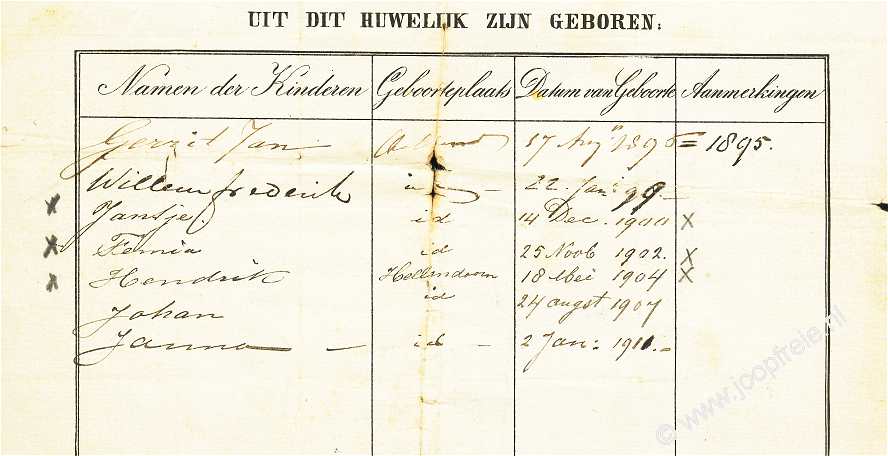 UIT DIT HUWELIJK ZIJN GEBOREN:
Namen der Kinderen Geboorteplaats Datum van Geboorte Aanmerkingen
Gerrit Jan 17 Aug 1895 = 1895.
Willem frederik id 22 Jan: 99.
x Jantje id 14 Dec. 1900 x
x Femia id 25 Noob 1902. x
x Hendrik Hellendoorn 18 Mei 1904 x
Johan id 24 augst 1907
Janna - id - 2 Jan: 1911.-
© www.joopfreie.nl